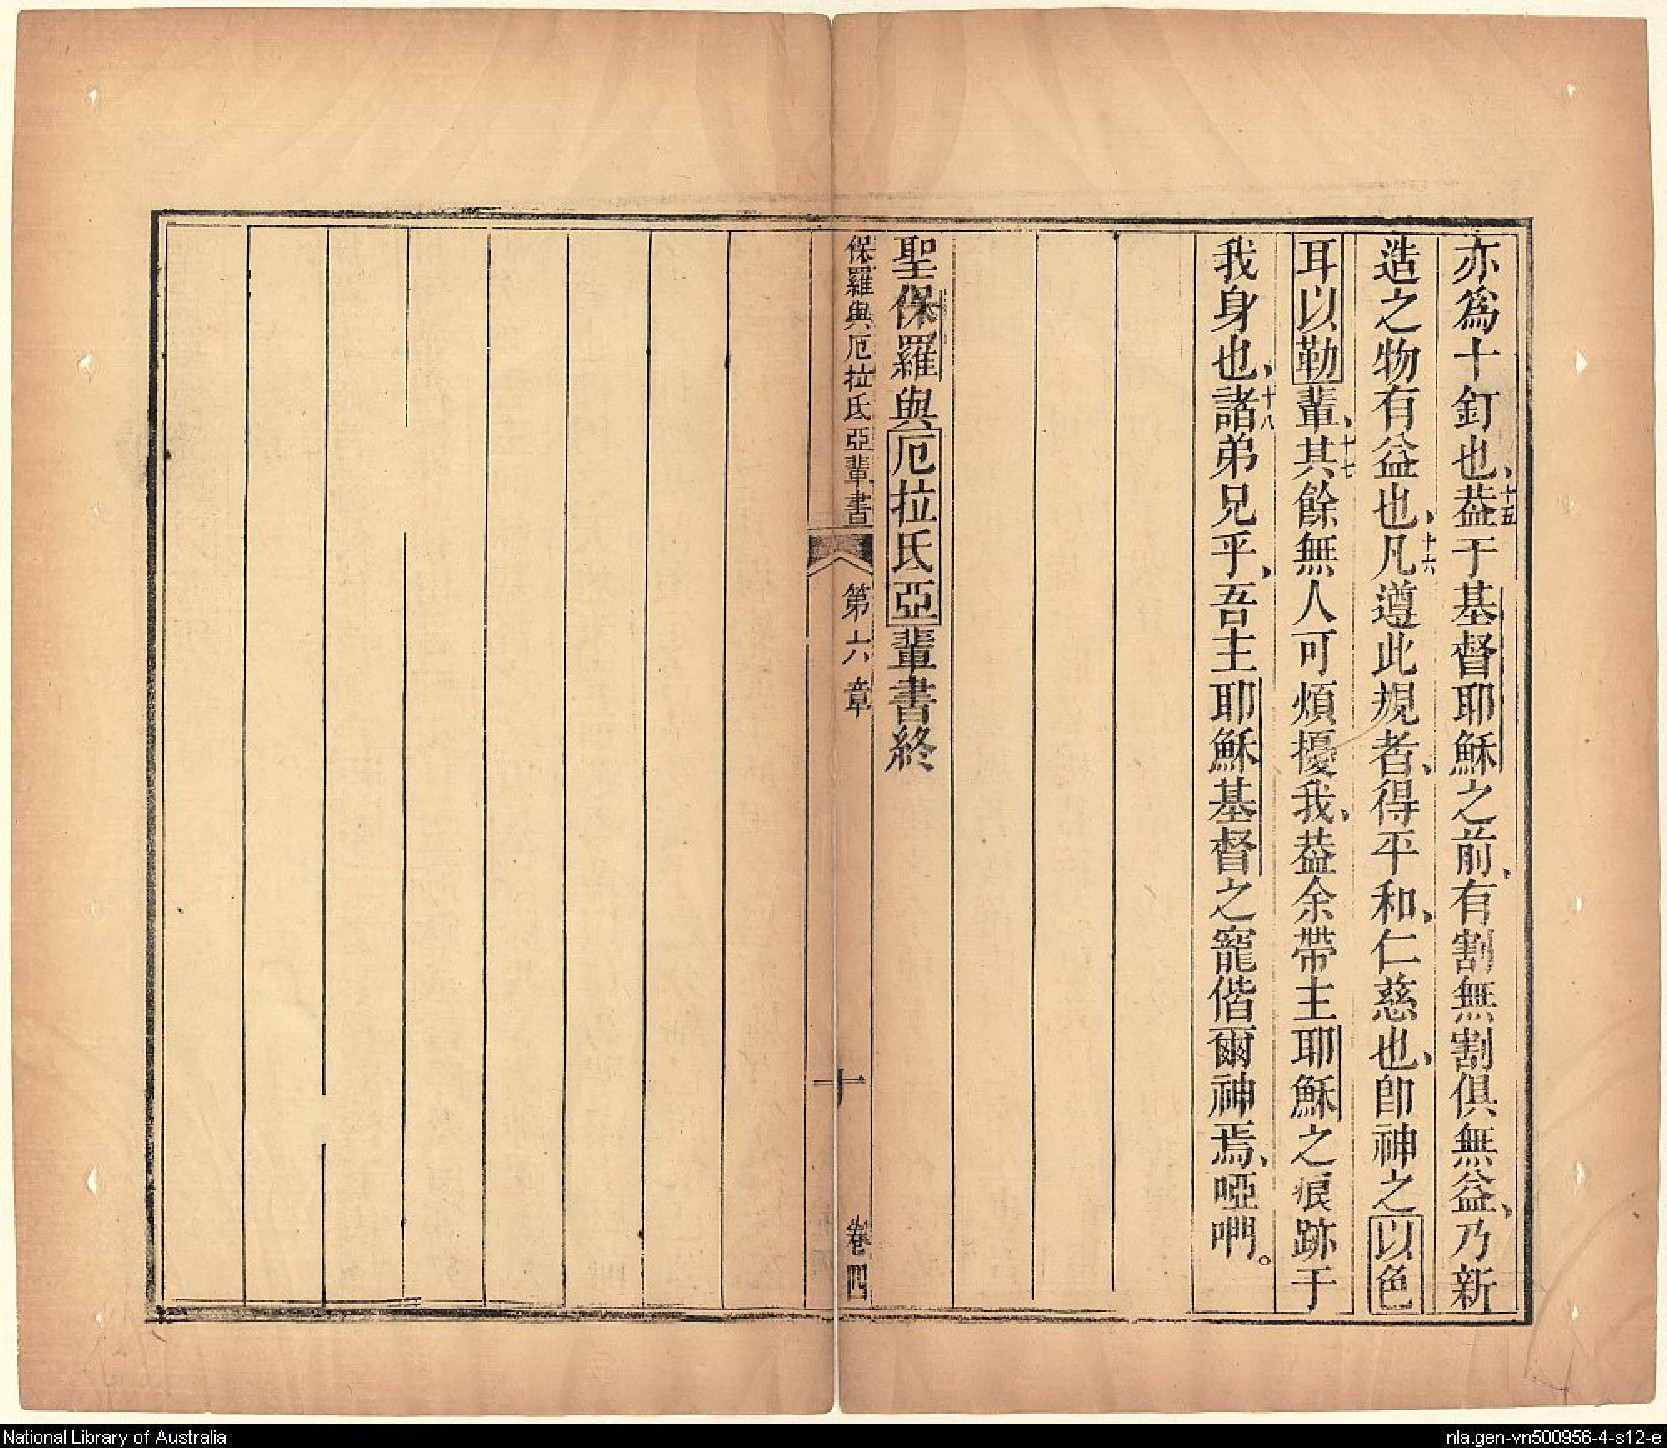 亦爲十釘也、十五葢于基督耶穌之前、有割無割俱無益、乃新
造之物有益也、十六凡遵此規者、得平和、仁慈也、卽神之以色
耳以勒輩、十七其餘無人可煩擾我、葢余帶主耶穌之痕跡于
我身也、十八諸弟兄乎、吾主耶穌基督之寵偕爾神焉、啞㗎。
聖保羅與厄拉氏亞輩書終
保羅與厄拉氏亞輩書 第六章 十 卷四
National Library of Australia
nla.gen-vn500956-4-s12-e